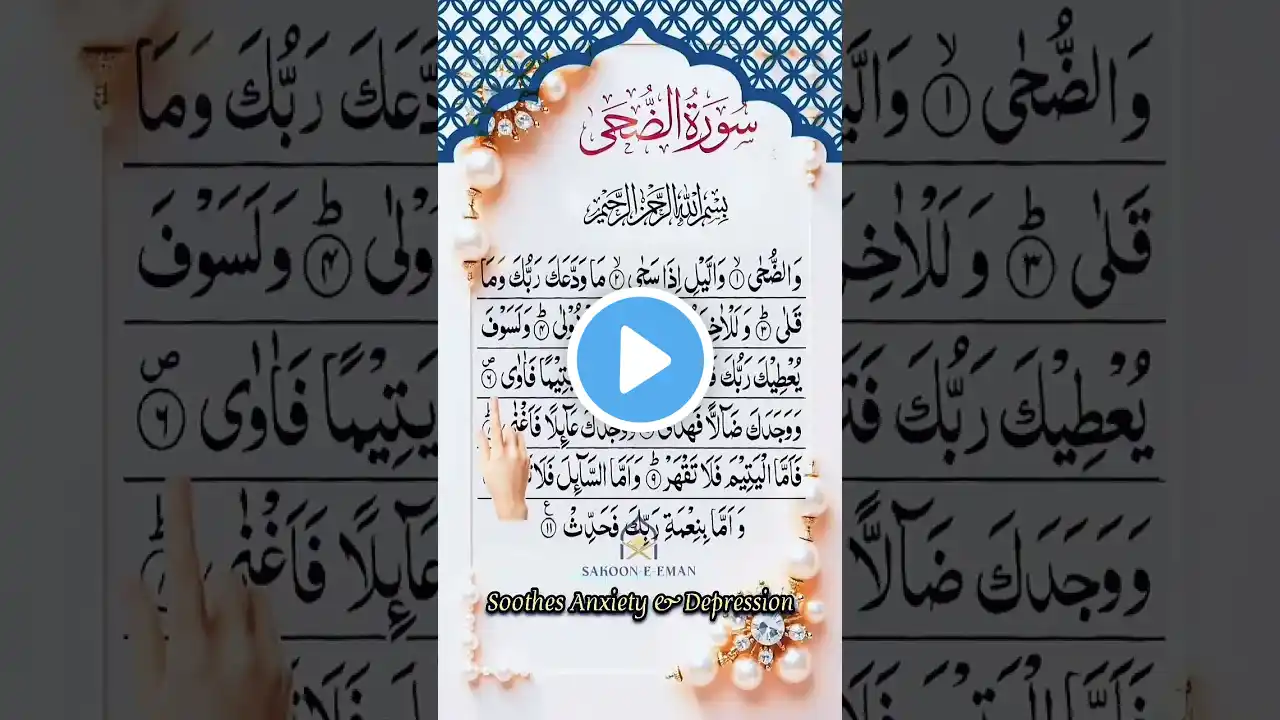 سُورَةُ الضُّحٰى
بِسْمِ اللّٰهِ الرَّحْمٰنِ الرَّحِيْمِ
وَالضُّحٰى ۙ۱ وَالَّيْلِ اِذَا سَجٰى ۙ۲ مَا وَدَّعَكَ رَبُّكَ وَمَا
قَلٰى ؕ۳ وَلَسَوْفَ
يُعْطِيْكَ رَبُّكَ يَتِيْمًا فَاٰوٰى ۪۶
وَوَجَدَكَ ضَآلًّا فَهَدٰى وَوَجَدَكَ عَآئِلًا فَاَغْنٰى
فَاَمَّا الْيَتِيْمَ فَلَا تَقْهَرْ ؕ۹ وَاَمَّا السَّآئِلَ فَلَا
وَاَمَّا بِنِعْمَةِ رَبِّكَ فَحَدِّثْ ۱۱
SAKOON-E-EMAN
Soothes Anxiety & Depression